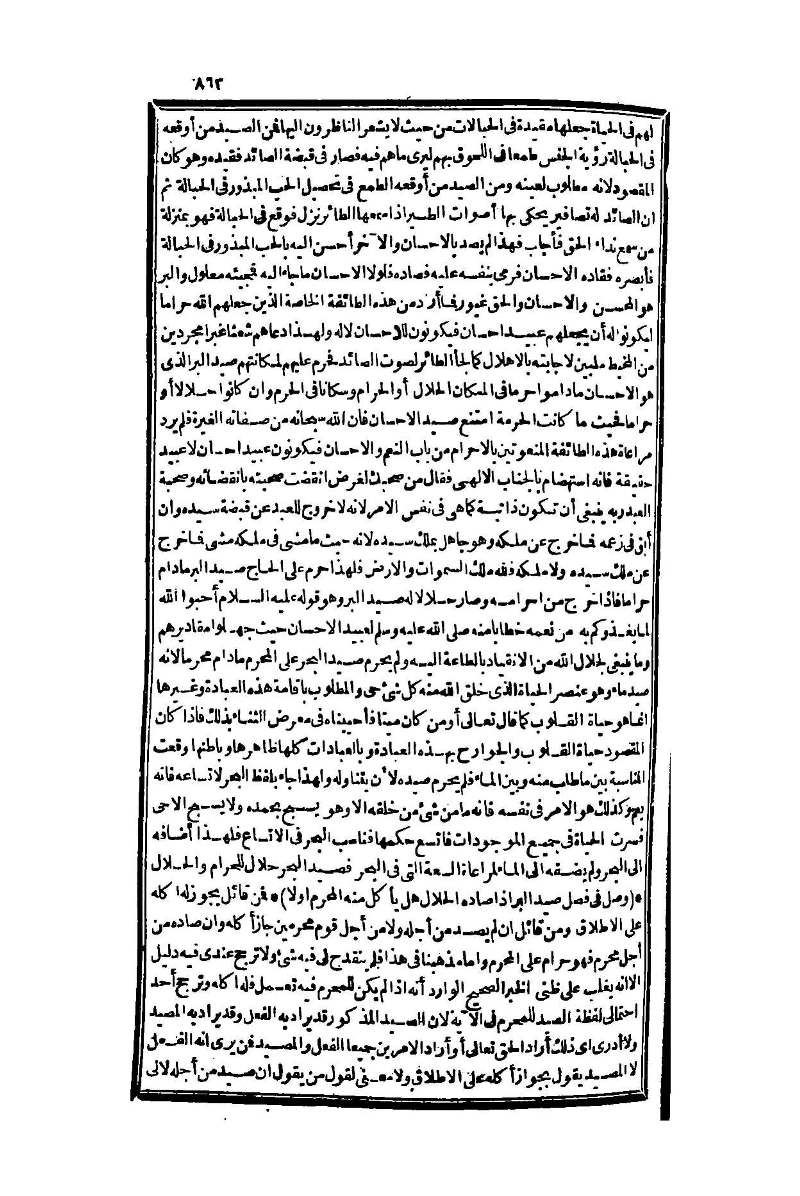 ٨٦٣
لهم فى الحياة جعلها مقيدة فى الحبالات من حيث لا يشعر الناظرون اليها فمن الصيد من أوقعه
فى الحبالة رؤية الجنس طمعا فى اللحوق بهم ليرى ما هم فيه فصار فى قبضة الصائد فقيده وهو كان
المقصود لانه مطلوب لعينه ومن الصيد من أوقعه الطمع فى تحصيل الحب المبذور فى الحبالة ثم
ان الصائد له تصافير يحكى بها أصوات الطير اذا سمعها الطائر نزل فوقع فى الحبالة فهو بمنزلة
من سمع نداء الحق فأجاب فهذا لم يصد بالاحسان والآخر أحسن اليه بالحب المبذور فى الحبالة
فأبصره فقاده الاحسان فرمى بنفسه عليه فصاده فلولا الاحسان ما جاء اليه فمجيئه معلول والبر
هو المحسن والاحسان والحق غيور فأراد من هذه الطائفة الخاصة الذين جعلهم الله حراما
ليكونوا له أن يجعلهم عبيد احسان فيكونون للاحسان لا له ولهذا دعاهم شعثا غبرا مجردين
من المخيط ملبين لاجابته بالاهلال كما لجأ الطائر لصوت الصائد فحرم عليهم لمكانتهم صيد البر الذى
هو الاحسان ما داموا حرما فى المكان الحلال أو الحرام وسكانا فى الحرم وان كانوا حلالا أو
حراما فحيث ما كانت الحرمة امتنع صيد الاحسان فان الله سبحانه من صفاته الغيرة فلم يرد
مراعاة هذه الطائفة المنعوتين بالاحرام من باب النعم والاحسان فيكونون عبيد احسان لا عبيد
حقيقة فانه استهضام بالجناب الالهى فقال من صحبك لغرض انقضت صحبته بانقضائه وصحبة
العبد ربه ينبغى أن تكون ذاتية كما هى فى نفس الامر لانه لا خروج للعبد عن قبضة سيده وان
أبق فى زعمه فما خرج عن ملكه وهو جاهل بملك سيده لانه حيث ما مشى فى ملكه مشى فما خرج
عن ملك سيده ولا ملكه فلله ملك السموات والارض فلهذا حرم على الحاج صيد البر ما دام
حراما فاذا خرج من احرامه وصار حلالا حل له صيد البر وهو قوله عليه السلام أحبوا الله
لما يغذوكم به من نعمه خطابا منه صلى الله عليه وسلم لعبيد الاحسان حيث جهلوا مقاديرهم
وما ينبغى لجلال الله من الانقياد بالطاعة اليه ولم يحرم صيد البحر على المحرم ما دام محرما لانه
صيد ماء وهو عنصر الحياة الذى خلق الله منه كل شئ حى والمطلوب باقامة هذه العبادة وغيرها
انما هو حياة القلوب كما قال تعالى أومن كان ميتا فأحييناه فى معرض الثناء بذلك فاذا كان
المقصود حياة القلوب والجوارح بهذه العبادة وبالعبادات كلها ظاهرها وباطنها وقعت
المناسبة بين ما طلب منه وبين الماء فلم يحرم صيده لأن يتناوله ولهذا جاء بلفظ البحر لاتساعه فانه
يعم وكذلك هو الامر فى نفسه فانه ما من شئ من خلقه الا وهو يسبح بحمده ولا يسبح الا حى
فسرت الحياة فى جميع الموجودات فاتسع حكمها فناسب البحر فى الاتساع فلهذا أضافه
الى البحر ولم يضفه الى الماء لمراعاة السعة التى فى البحر فصيد البحر حلال للحرام والحلال
*(وصل فى فصل صيد البر اذا صاده الحلال هل يأكل منه المحرم اولا)* فمن قائل يجوز له أكله
على الاطلاق ومن قائل ان لم يصد من أجله ولا من أجل قوم محرمين جاز أكله وان صاده من
أجل محرم فهو حرام على المحرم واما مذهبنا فى هذا فلم ينقدح لى فيه شئ ولا ترجح عندى فيه دليل
الا انه يغلب على ظنى الخبر الصحيح الوارد أنه اذا لم يكن للمحرم فيه تعمل فله اكله وترجح أحد
احتمالى لفظة الصيد للمحرم فى الآية لان الصيد المذكور قد يراد به الفعل وقد يراد به المصيد
ولا أدرى اى ذلك أراد الحق تعالى أو أراد الامرين جميعا الفعل والمصيد فمن يرى انه الفعل
لا المصيد يقول بجواز أكله على الاطلاق ولا معنى لقول من يقول ان صيد من أجله لانى